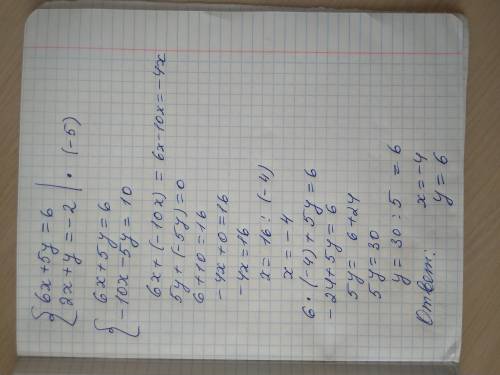 { 6x+5y=6
2x+y=-2 | • (-5)
{ 6x+5y=6
-10x-5y=10
6x+(-10x)=6x-10x=-4x
5y+(-5y)=0
6+10=16
-4x+0=16
-4x=16
x=16:(-4)
x=-4
6•(-4)+5y=6
-24+5y=6
5y=6+24
5y=30
y=30:5=6
Ответ: x=-4
y=6